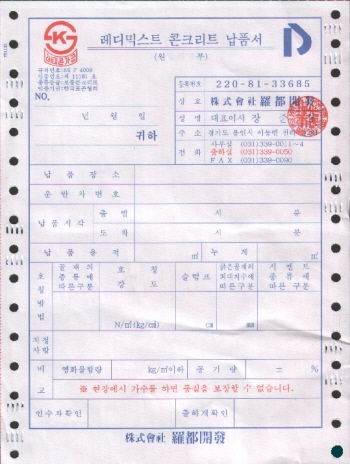 레디믹스트 콘크리트 납품서
(원 부)
규격번호: KS F 4009
NO.
년 월 일
귀하
등록번호 220-81-33685
상호 株式會社 羅都開發
성명 대표이사 장
주소 경기도 용인시 이동면
전화 사무실 (031)339-0011~4
출하실 (031)339-0050
FAX (031)339-0090
납품장소
운반차번호
납품시각 출발 시 분
도착 시 분
납품용적 ㎥ 누계 ㎥
호칭방법 골재의 종류에 따른구분 호칭강도 슬럼프 굵은골재의 최대치수에 따른구분 시멘트 종류에 따른구분
N/㎟(kg/㎠) cm mm
지정사항
비고 염화물함량 kg/㎥이하 공기량 ± %
※ 현장에서 가수를 하면 품질을 보장할 수 없습니다.
인수자확인 출하계확인
株式會社 羅都開發